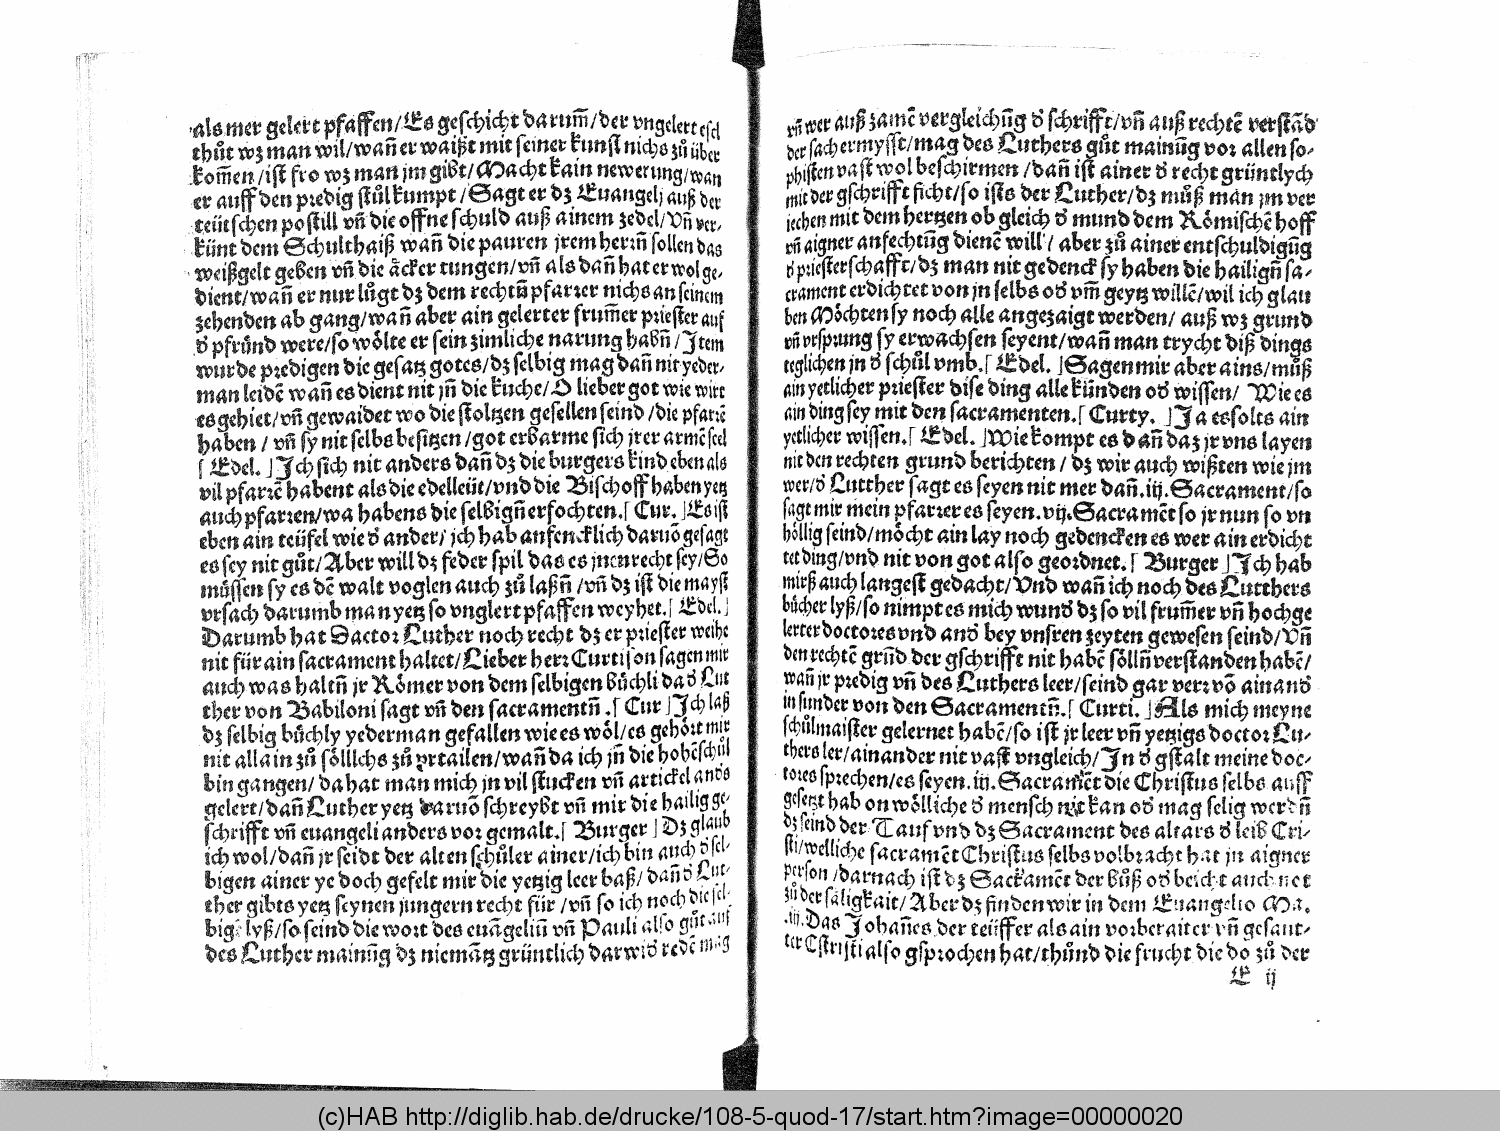 als mer gelert pfaffen/Es geschicht darum̃/der vngelert esel
thůt wz man wil/wan̄ er waißt mit seiner kunst nichs zů über
kom̃en/ist fro wz man jm gibt/Macht kain newerung/wan
er auff den predig stůl kumpt/Sagt er dz Euangelj auß der
teütschen postill vn̄ die offne schuld auß ainem zedel/Vn̄ ver-
künt dem Schulthaiß wan̄ die pauren jrem herin̄ sollen das
weißgelt geben vn̄ die äcker tungen/vn̄ als dan̄ hat er wol ge-
dient/wan̄ er nur lůgt dz dem rechtn̄ pfarrer nichs an seinem
zehenden ab gang/wan̄ aber ain gelerter frum̃er priester auf
d̕ pfrůnd were/so wölte er sein zimliche narung habn̄/Item
wurde predigen die gesatz gotes/dz selbig mag dan̄ nit yeder-
man leidē wan̄ es dient nit jn̄ die kuche/O lieber got wie wirt
es gehiet/vn̄ gewaidet wo die stoltzen gesellen seind/die pfarrē
haben/vn̄ sy nit selbs besitzen/got erbarme sich jrer armē seel
[Edel.] Ich sich nit anders dan̄ dz die burgers kind eben als
vil pfarrē habent als die edelleüt/vnd die Bischoff haben yetz
auch pfarren/wa habens die selbign̄ erfochten.[Cur.] Es ist
eben ain teüfel wie d̕ ander/ich hab anfencklich daruō gesagt
es sey nit gůt/Aber will dz feder spil das es jnen recht sey/So
müssen sy es dē walt voglen auch zů laßn̄/vn̄ dz ist die mayst
vrsach darumb man yetz so vnglert pfaffen weyhet.[Edel.]
Darumb hat Dactor Luther noch recht dz er priester weihe
nit für ain sacrament haltet/Lieber herr Curti son sagen mir
auch was haltn̄ jr Römer von dem selbigen büchli da d̕ Lut
ther von Babiloni sagt vn̄ den sacramentn̄.[Cur] Ich laß
dz selbig büchly yederman gefallen wie es wöl/es gehört mir
nit allain zů söllichs zů vrtailen/wan̄ da ich jn̄ die hohēschůl
bin gangen/da hat man mich jn vil stucken vn̄ artickel ands
gelert/dan̄ Luther yetz daruō schreybt vn̄ mir die hailig ge-
schrifft vn̄ euangeli anders vor gemalt.[Burger] Dz glaub
ich wol/dan̄ jr seidt der alten schůler ainer/ich bin auch d̕ sel-
bigen ainer ye doch gefelt mir die yetzig leer baß/dan̄ d̕ Lut-
ther gibts yetz seynen jungern recht für/vn̄ so ich noch die sel-
bige lyß/so seind die wort des euāgeliū vn̄ Pauli also gůt auf
des Luther mainūg dz niemātz grüntlich darwid̕ redē mag
vn̄ wer auß zamē vergleichūg d̕ schrifft/vn̄ auß rechtē verstād
der sach ermysst/mag des Luthers gůt mainūg vor allen so-
phisten vast wol beschirmen/dan̄ ist ainer d̕ recht grüntlych
mit der gschrifft ficht/so ists der Luther/dz můß man jm ver
jechen mit dem hertzen ob gleich d̕ mund dem Römischē hoff
vn̄ aigner anfechtūg dienē will/aber zů ainer entschuldigūg
d̕ priesterschafft/dz man nit gedenck sy haben die hailign̄ sa-
crament erdichtet von jn selbs od̕ vm̃ geytz willē/wil ich glau
ben Möchten sy noch alle angezaigt werden/auß wz grund
vn̄ vrsprung sy erwachsen seyent/wan̄ man trycht diß dings
teglichen jn d̕ schůl vmb.[Edel.] Sagen mir aber ains/můß
ain yetlicher priester dise ding alle künden od̕ wissen/Wie es
ain ding sey mit den sacramenten.[Curty.] Ja es solts ain
yetlicher wissen.[Edel.] Wie kompt es dan̄ daz jr vns layen
nit den rechten grund berichten/dz wir auch wißten wie jm
wer/d̕ Lutther sagt es seyen nit mer dan̄.iij.Sacrament/so
sagt mir mein pfarrer es seyen.vij.Sacramēt so jr nun so vn
höllig seind/möcht ain lay noch gedencken es wer ain erdicht
tet ding/vnd nit von got also geordnet.[Burger] Ich hab
mirß auch langest gedacht/Vnd wan̄ ich noch des Lutthers
bücher lyß/so nimpt es mich wund̕ dz so vil frum̃er vn̄ hochge
lerter doctores vnd and̕ bey vnsren zeyten gewesen seind/Vn̄
den rechtē grūd der gschrifft nit habē sölln̄ verstanden habē/
wan̄ jr predig vn̄ des Luthers leer/seind gar verr vō ainand̕
in sunder von den Sacramentn̄.[Curti.] Als mich meyne
schůlmaister gelernet habē/so ist jr leer vn̄ yetzigs doctor Lu-
thers ler/ainander nit vast vngleich/In d̕ gstalt meine doc-
tores sprechen/es seyen.iij.Sacramēt die Christus selbs auff
gesetzt hab on wölliche d̕ mensch nit kan od̕ mag selig werdn̄
dz seind der Tauf vnd dz Sacrament des altars d̕ leib Cri-
sti/welliche sacramēt Christus selbs volbracht hat jn aigner
person/darnach ist dz Sacramēt der bůß od̕ beicht auch not
zů der säligkait/Aber dz finden wir in dem Euangelio Ma.
.iij.Das Johan̄es der teüffer als ain vorberaiter vn̄ gesant-
ter Cristi also gsprochen hat/thůnd die frucht die do zů der
E ij
(c)HAB http://diglib.hab.de/drucke/108-5-quod-17/start.htm?image=00000020